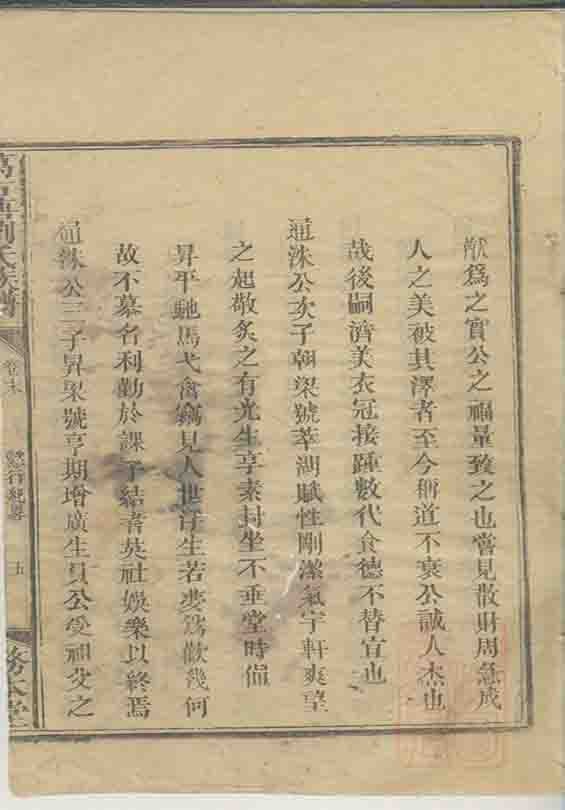 猷爲之實公之福量致之也嘗見散財周急成
人之美被其澤者至今稱道不衰公誠人杰也
哉後嗣濟美衣冠接踵數代食德不替宜也
通洙公次子朝梁號萃湖賦性剛潔氣宇軒爽望
之起敬炙之有光生享素封坐不垂堂時値
昇平馳馬弋禽竊見人世浮生若夢爲歡幾何
故不慕名利勤於課子結耆英社娛樂以終焉
通洙公三子昇梁號亨期增廣生員公受祖父之
萬 劉氏家譜
卷末
懿行紀畧
五
務本堂